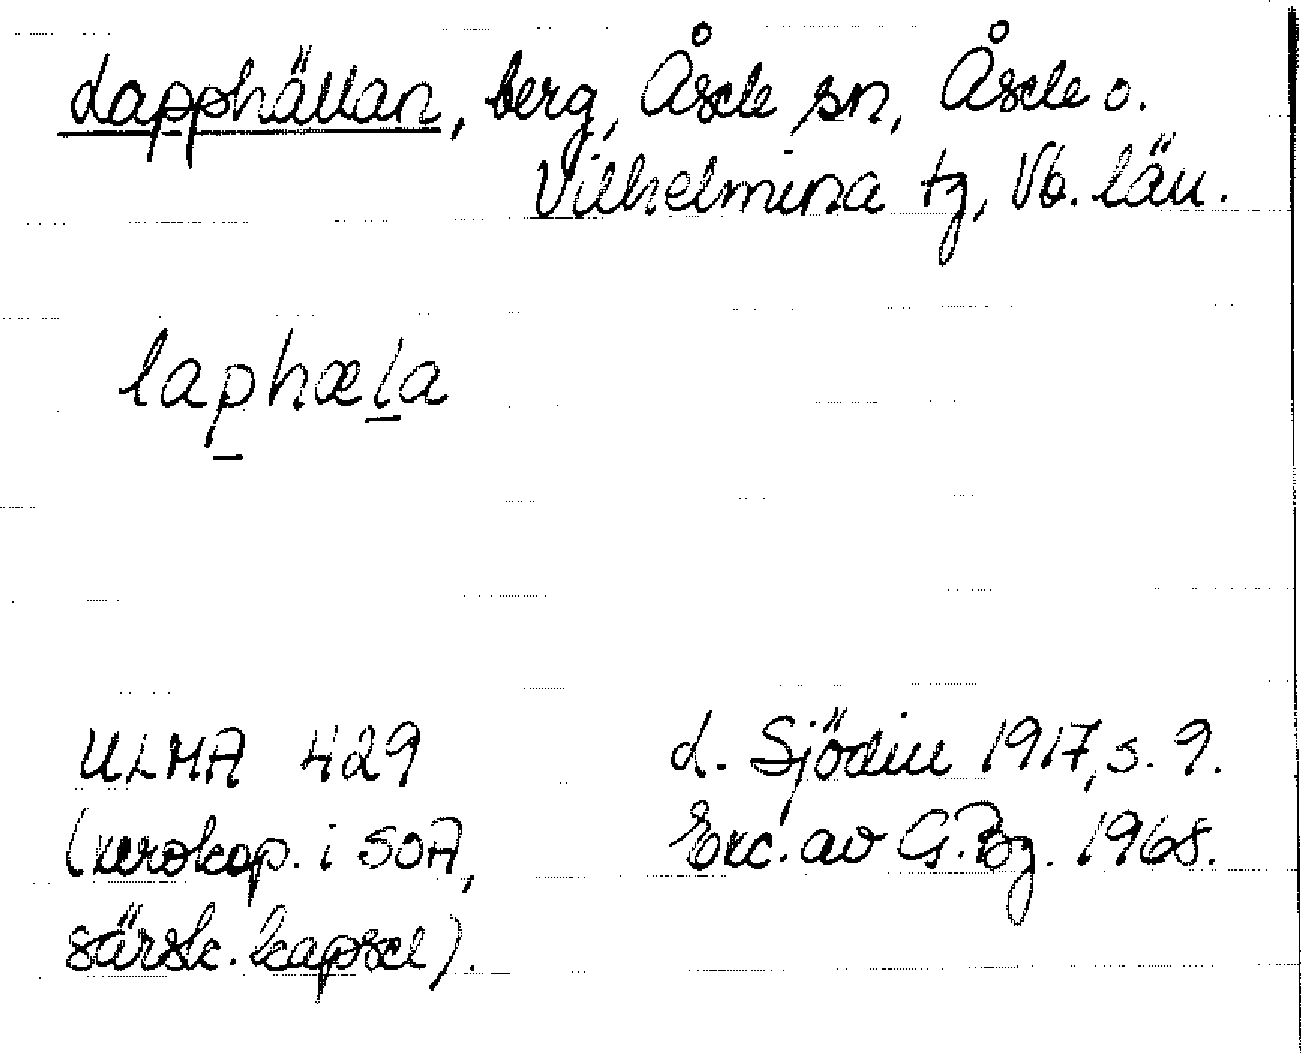 Lapphällan, berg, Åsele sn, Åsele o.
Vilhelmina tg, Vb. län.
laphæla
ULMA 429
(xerokop. i SOA,
särsk. kapsel).
L. Sjödin 1917, s. 9.
Exc. av G. Bg. 1968.